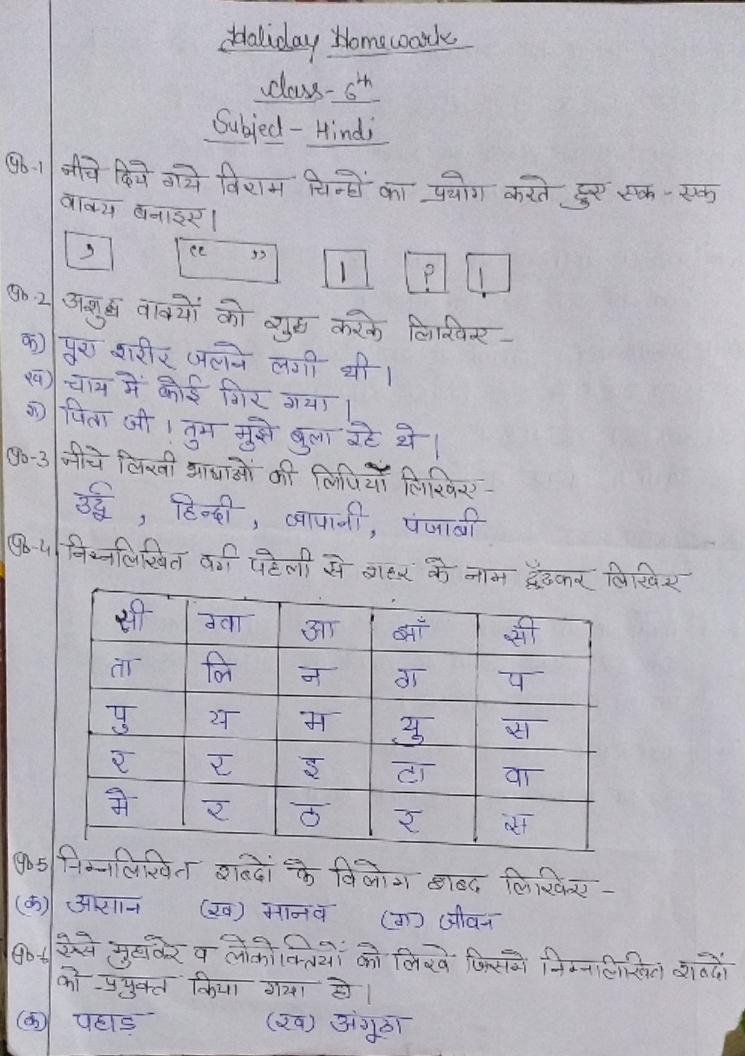 Holiday Homework
Class- 6th
Subject - Hindi
प्र०-1 नीचे दिये गये विराम चिन्हों का प्रयोग करते हुए एक - एक
वाक्य बनाइए।
, “ ” । ? ।
प्र०-2 अशुद्ध वाक्यों को शुद्ध करके लिखिए -
क) पूरा शरीर जलने लगी थी।
ख) चाय में कोई गिर गया।
ग) पिता जी। तुम मुझे बुला रहे थे।
प्र०-3 नीचे लिखी भाषाओं की लिपियाँ लिखिए -
उर्दू , हिन्दी , जापानी, पंजाबी
प्र०-4 निम्नलिखित वर्ग पहेली से शहर के नाम ढूँढकर लिखिए
सी ग्वा आ झाँ सी
ता लि न ग प
पु य म यु स
र र इ टा वा
मे र ठ र स
प्र०5 निम्नलिखित शब्दों के विलोम शब्द लिखिए -
(क) आसान (ख) मानव (ग) जीवन
प्र०-6 ऐसे मुहावरे व लोकोक्तियों को लिखे जिसमे निम्नलिखित शब्दों
को प्रयुक्त किया गया हो।
(क) पहाड़ (ख) अंगूठा